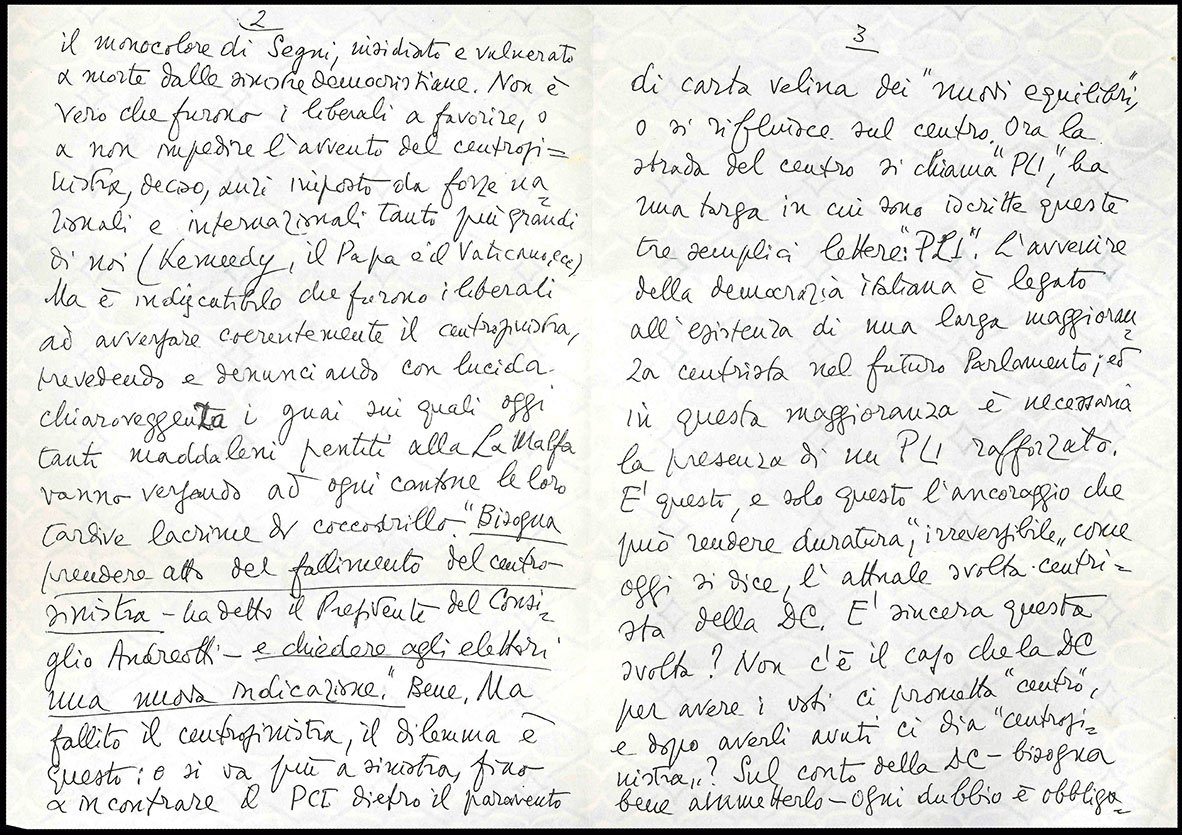 2
il monocolore di Segni, insidiato e vulnerato
a morte dalle sinistre democristiane. Non è
vero che furono i liberali a favorire, o
a non impedire l'avvento del centrosi=
nistra, deciso, anzi imposto da forze na=
zionali e internazionali tanto più grandi
di noi (Kennedy, il Papa e il Vaticano, ecc)
Ma è indiscutibile che furono i liberali
ad avversare coerentemente il centrosinistra,
prevedendo e denunciando con lucida
chiaroveggenza i guai sui quali oggi
tanti maddaleni pentiti alla La Malfa
vanno versando ad ogni cantone le loro
tardive lacrime di coccodrillo. "Bisogna
prendere atto del fallimento del centro-
sinistra - ha detto il Presidente del Consi=
glio Andreotti - e chiedere agli elettori
una nuova indicazione." Bene. Ma
fallito il centrosinistra, il dilemma è
questo: o si va più a sinistra, fino
a incontrare il PCI dietro il paravento
3
di carta velina dei "nuovi equilibri",
o si rifluisce sul centro. Ora la
strada del centro si chiama "PLI", ha
una targa in cui sono iscritte queste
tre semplici lettere: "PLI". L'avvenire
della democrazia italiana è legato
all'esistenza di una larga maggioran=
za centrista nel futuro Parlamento; ed
in questa maggioranza è necessaria
la presenza di un PLI rafforzato.
E' questo, e solo questo l'ancoraggio che
può rendere duratura, "irreversibile" come
oggi si dice, l'attuale svolta centri=
sta della DC. E' sincera questa
svolta? Non c'è il caso che la DC
per avere i voti ci prometta "centro",
e dopo averli avuti ci dia "centrosi=
nistra"? Sul conto della DC - bisogna
bene ammetterlo - ogni dubbio è obbliga=